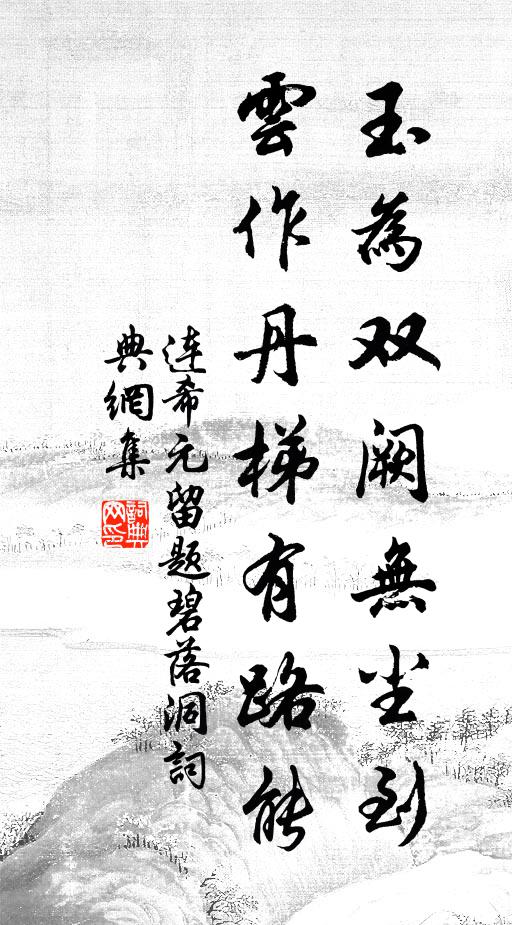 玉為双阙無尘到
雲作丹梯有路能
连希元留题碧落洞詞
典網集
詞典
网印